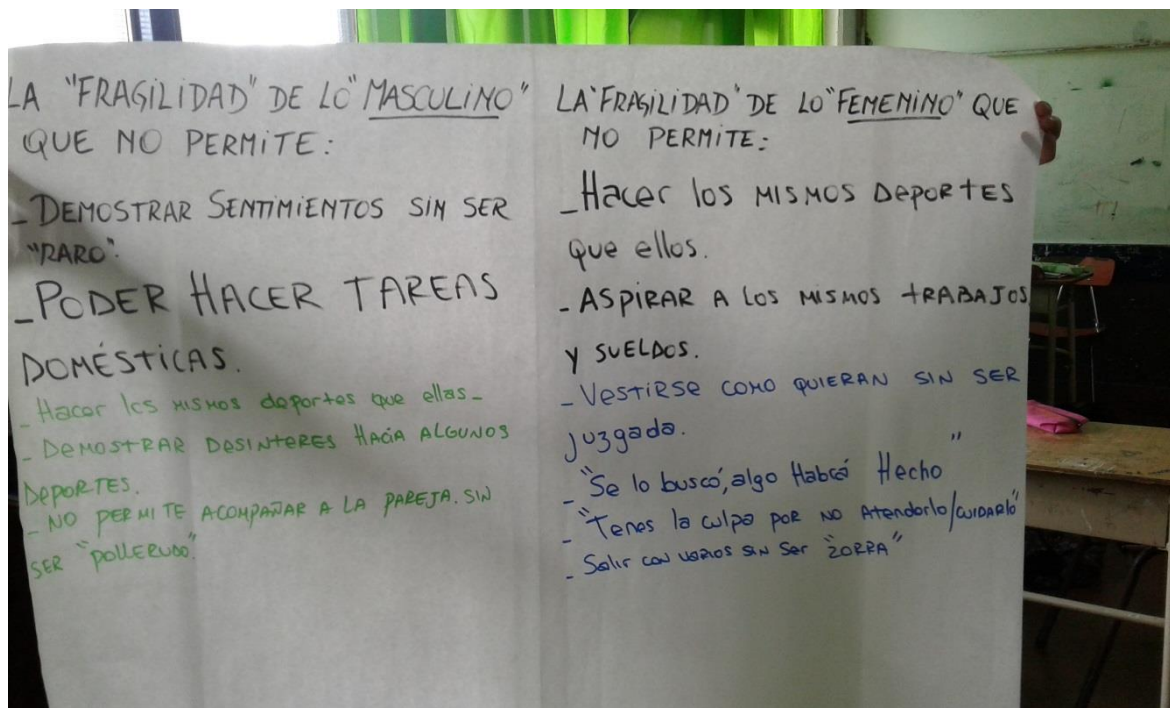 LA "FRAGILIDAD" DE LO "MASCULINO"
QUE NO PERMITE:
_DEMOSTRAR SENTIMIENTOS SIN SER
"RARO".
_PODER HACER TAREAS
DOMÉSTICAS.
_Hacer los mismos deportes que ellas_
_DEMOSTRAR DESINTERES HACIA ALGUNOS
DEPORTES.
_NO PERMITE ACOMPAÑAR A LA PAREJA. SIN
SER "POLLERUDO".
LA "FRAGILIDAD" DE LO "FEMENINO" QUE
NO PERMITE:
_Hacer los MISMOS DEPORTES
que ellos.
_ASPIRAR A LOS MISMOS TRABAJOS
Y SUELDOS.
_VESTIRSE COMO QUIERAN SIN SER
juzgada.
_"Se lo buscó, algo Habrá Hecho"
_"Tenes la culpa por NO Atenderlo/CUIDARLO"
_Salir con varios sin ser "ZORRA"